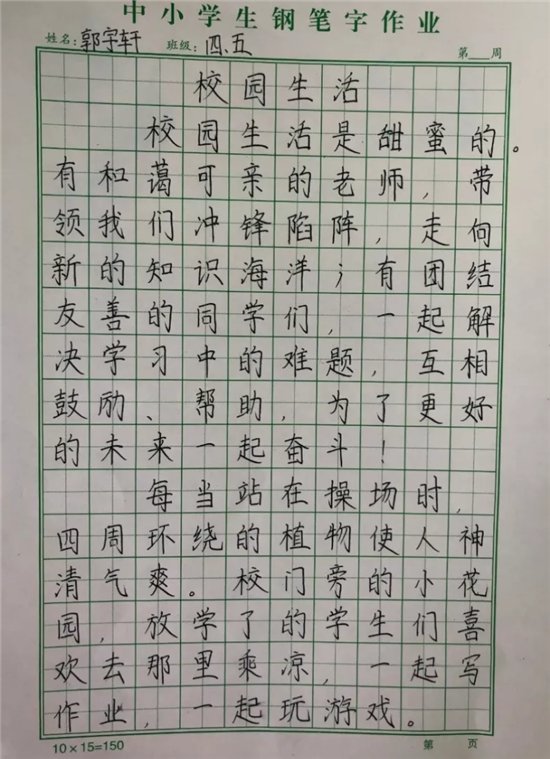 中小学生钢笔字作业
姓名:郭宇轩 班级:四、五 第___周
校园生活
校园生活是甜蜜的。
有和蔼可亲的老师，带
领我们冲锋陷阵，走向
新的知识海洋；有团结
友善的同学们，一起解
决学习中的难题，互相
鼓励、帮助，为了更好
的未来一起奋斗！
每当站在操场时，
四周环绕的植物使人神
清气爽。校门旁的小花
园，放学了的学生们喜
欢去那里乘凉，一起写
作业，一起玩游戏。
10×15=150 第 页